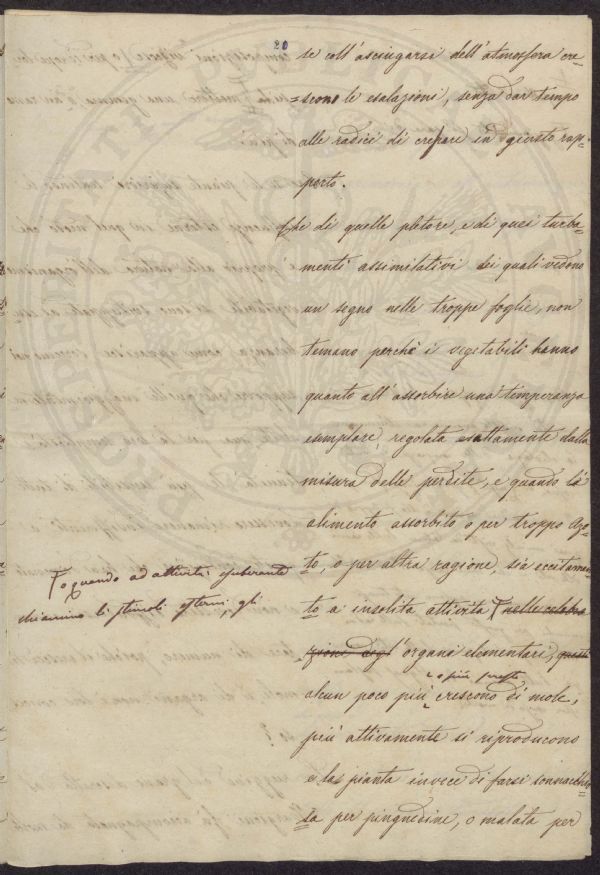 20
se coll'asciugarsi dell'atmosfera cre-
=scono le esalazioni, senza dar tempo
alle radici di crepare in giusto rap-
porto.
Che di quelle pletore, e di quei turba-
menti assimilativi dei quali vedono
un segno nelle troppe foglie, non
temano perchè i vegetabili hanno
quanto all'assorbire una temperanza
esemplare, regolata esattamente dalla
misura delle perdite, e quando lo
alimento assorbito o per troppo Azo-
to, o per altra ragione, sia eccitamen-
to a insolita attività nelle celebra
zione degl'organi elementari, questi
alcun poco più crescono di mole,
o più presto
più attivamente si riproducono
e la pianta invece di farsi sonnacchio
sa per pinguedine, o malata per
o quando ad attività esuberante
chiamino li stimoli esterni, gli